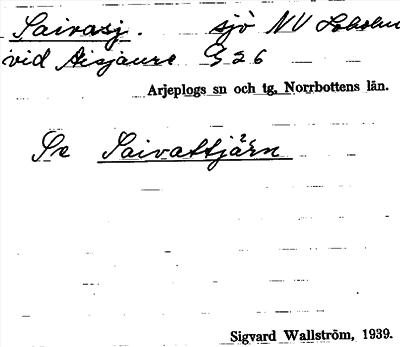 Saivasj. sjö NV Loholm
vid Aisjaure G 26
Arjeplogs sn och tg, Norrbottens län.
Se Saivattjärn
Sigvard Wallström, 1939.